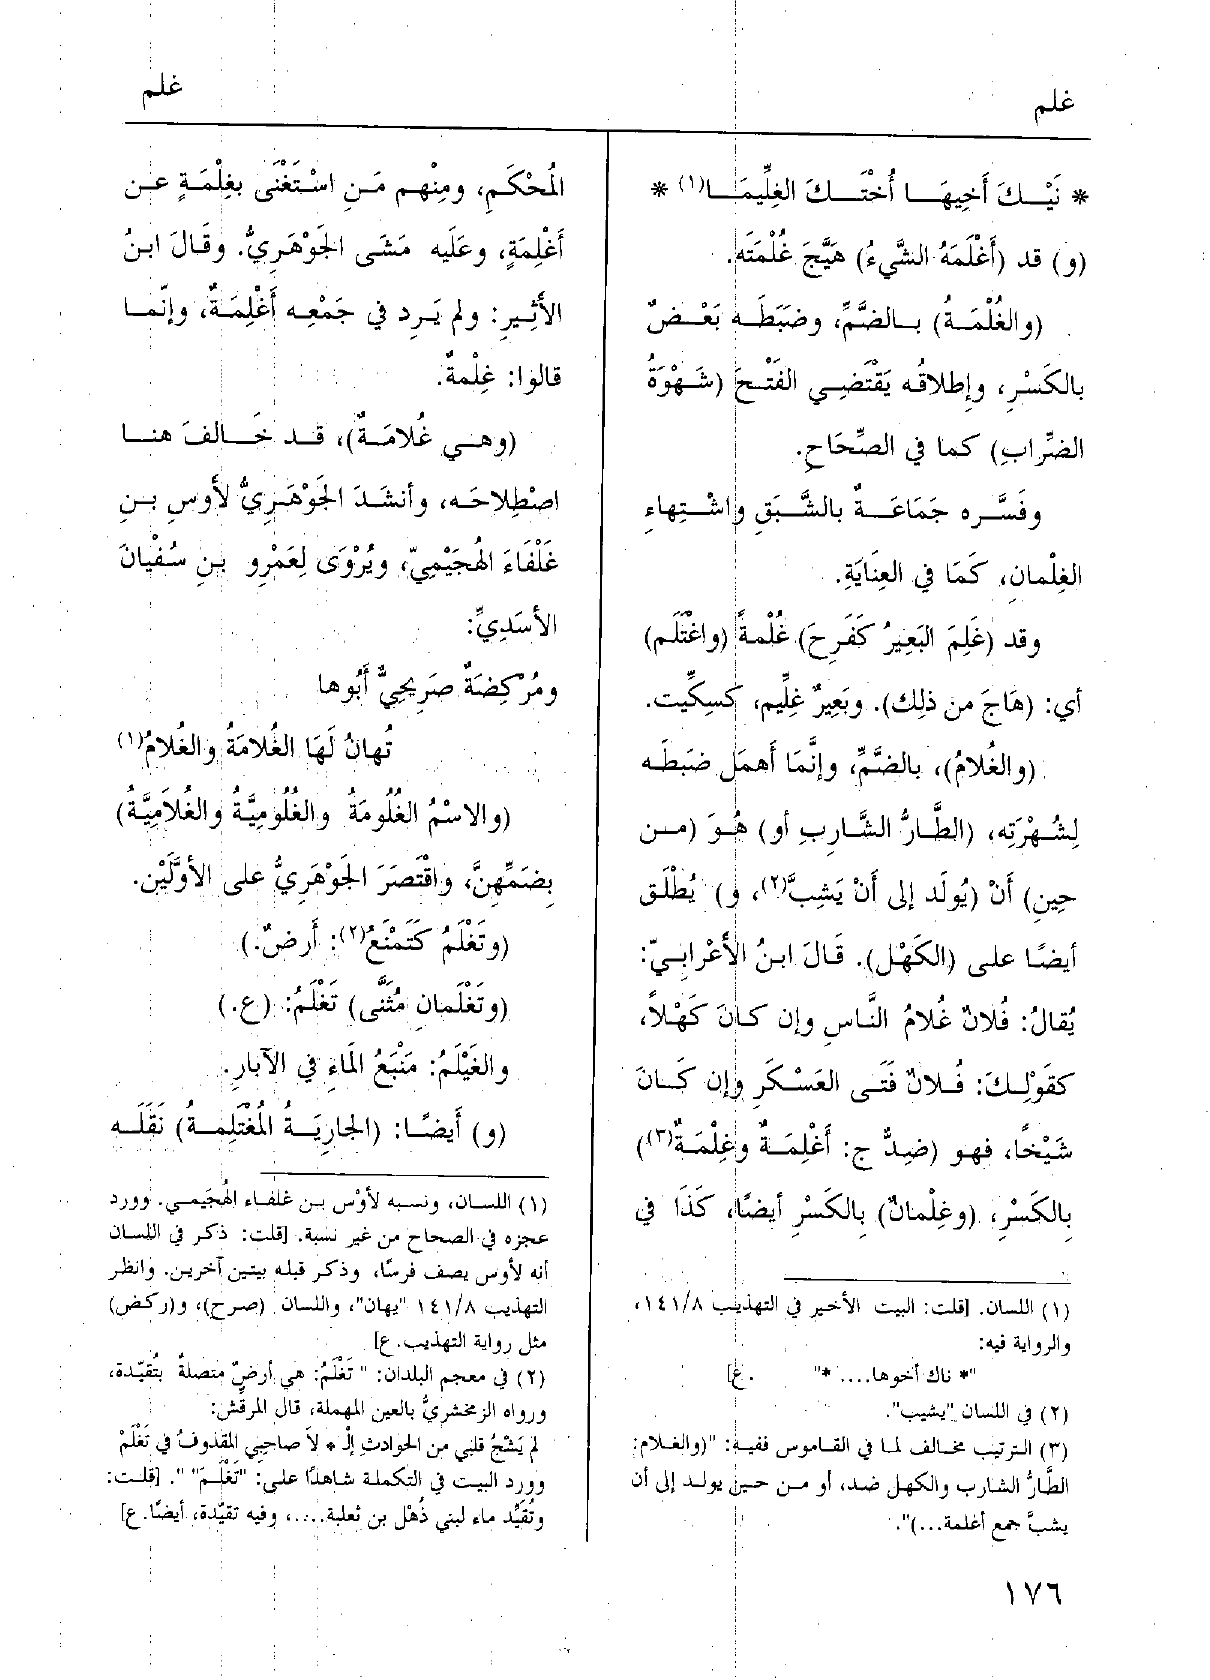 غلم
غلم
* نَيْـــكَ أَخِيهَـــا أُخْتَـــكَ الغِلِّيمَـــا(١) *
(و) قد (أَغْلَمَهُ الشَّيءُ) هَيَّجَ غُلْمَتَه.
(والغُلْمَـةُ) بـالضَّمِّ، وضَبَطَـه بَعْـضٌ
بالكَسْرِ، وإطلاقُـه يَقْتَضِـي الفَتْـحَ (شَـهْوَةُ
الضِّرابِ) كما في الصِّحَاحِ.
وفَسَّـره جَمَاعَـةٌ بالشَّـبَقِ واشْـتِهاءِ
الغِلْمانِ، كَمَا في العِنَايَةِ.
وقد (غَلِمَ البَعِيرُ كَفَرِحَ) غُلْمةً (واغْتَلَم)
أي: (هَاجَ من ذلِك). وبَعِيرٌ غِلِّيم، كسِكِّيت.
(والغُلامُ)، بالضَّمِّ، وإنَّمَا أهمَل ضَبطَـه
لِشُـهْرَتِه، (الطَّـارُّ الشَّـارِبِ أو) هُـوَ (مـن
حِينِ) أَنْ (يُولَد إلى أَنْ يَشِبَّ(٢)، و) يُطْلَق
أيضًـا علـى (الكَهْل). قَـالَ ابـنُ الأَعْرابـيّ:
يُقالُ: فُلانٌ غُلامُ النَّـاسِ وإن كـانَ كَهْـلاً،
كقَوْلِـكَ: فُـلانٌ فَتَـى العَسْـكَرِ وإن كَـانَ
شَيْخًـا، فهـو (ضِـدٌّ ج: أَغْلِمَـةٌ وغِلْمَـةٌ(٣))
بِالكَسْرِ، (وغِلْمانٌ) بِالكَسْرِ أيضًـا، كَذَا في
(١) اللسـان. [قلت: البيت الأخـير في التهذيـب ١٤١/٨،
والرواية فيه:
"* ناك أخوها.... *" .ع]
(٢) في اللسان "يشيب".
(٣) الترتيب مخـالف لمـا في القـاموس ففيـه: "(والغـلام:
الطَّارُّ الشارب والكهل ضد، أو مـن حـين يولـد إلى أن
يشبَّ جمع أغلمة...)".
المُحْكَمِ، ومِنْهم مَـنِ اسْـتَغْنَى بغِلْمَـةٍ عـن
أَغْلِمَةٍ، وعَلَيه مَشَى الجَوْهَـرِيُّ. وقَـالَ ابـنُ
الأَثِيرِ: ولم يَـرِد في جَمْعِـه أَغْلِمَـةٌ، وإنّمـا
قالوا: غِلْمةٌ.
(وهـي غُلامَـةٌ)، قـد خَـالَفَ هنـا
اصْطِلاحَـه، وأنشَـدَ الجَوْهَـرِيُّ لأَوسِ بـنِ
غَلْفَاءَ الهُجَيْمِيّ، ويُرْوَى لِعَمْرِو بـنِ سُفْيانَ
الأسَدِيِّ:
ومُرْكِضَةٌ صَرِيحِيٌّ أَبُوها
تُهانُ لَهَا الغُلامَةُ والغُلامُ(١)
(والاسْمُ الغُلُومَةُ والغُلُومِيَّةُ والغُلاَمِيَّةُ)
بِضَمِّهِنَّ، واقْتَصَرَ الجَوْهَرِيُّ على الأوَّلَيْن.
(وتَغْلَمُ كَتَمْنَعُ(٢): أَرضٌ.)
(وتَغْلَمان مُثَنَّى) تَغْلَمُ: (ع.)
والغَيْلَمُ: مَنْبَعُ المَاءِ في الآبارِ.
(و) أَيضًـا: (الجارِيَـةُ المُغْتَلِمـةُ) نَقَلَـه
(١) اللسـان، ونسـبه لأوْس بـن غلفـاء الهُجيمـي. وورد
عجزه في الصحاح من غير نسبة. [قلت: ذكر في اللسان
أنه لأوس يصف فرسًا، وذكر قبله بيتين آخرين. وانظر
التهذيب ١٤١/٨ "يهان"، واللسان (صرح)، و(ركض)
مثل رواية التهذيب. ع]
(٢) في معجم البلدان: "تَغْلَمُ: هي أرضٌ متصلةٌ بتُقَيّدة،
ورواه الزمخشريُّ بالعين المهملة، قال المرقش:
لم يَشْجُ قلبي من الحوادثِ إلْـ * لاَ صاحبي المقذوفُ في تَغْلَمْ
وورد البيت في التكملة شاهدًا على: "تَغْلَـمَ" ". [قلـت:
وتُقَيِّد ماء لبني ذُهْل بن ثعلبة....، وفيه تقيّدة، أيضًا. ع]
١٧٦